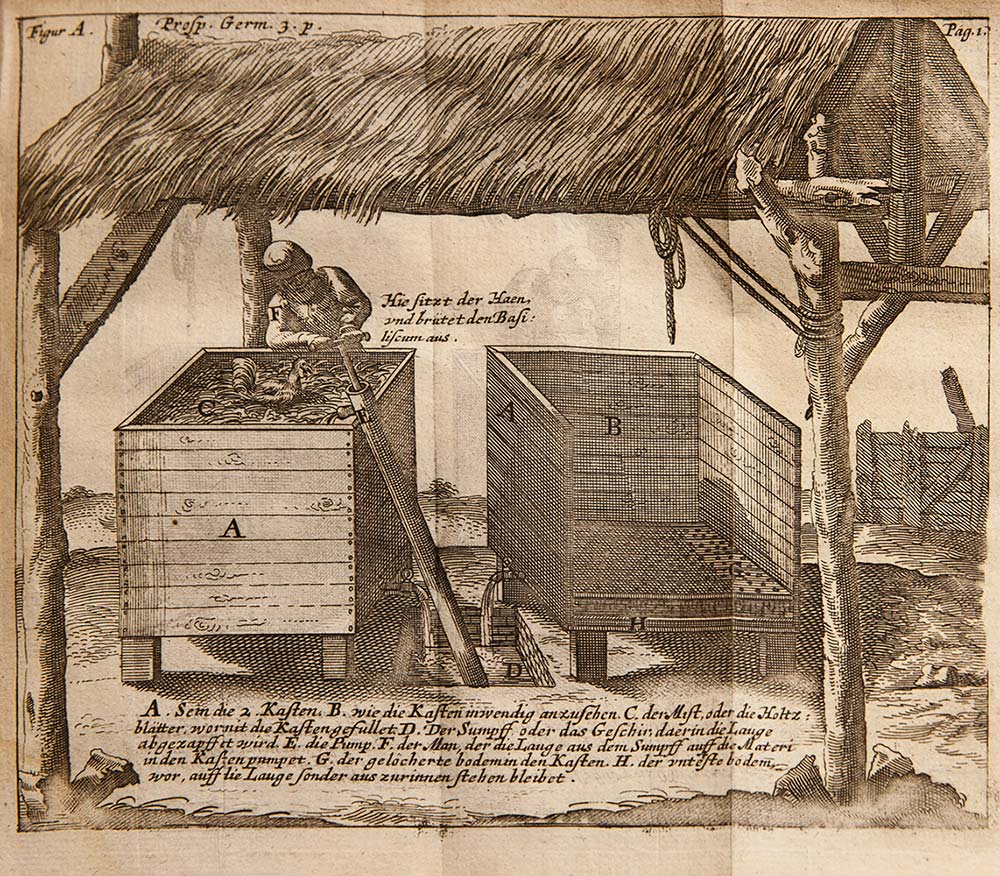 Figur A.
Prosp. Germ. 3. p.
Pag. 1.
F
Hie sitzt der Haen,
vnd brütet den Basi:
liscum aus.
C
A
B
A
G
H
D
A. Sein die 2. Kasten. B. wie die Kasten inwendig anzusehen. C. der Mist, oder die Holtz:
blätter, wormit die Kasten gefüllet. D. Der Sumpff oder das Geschir, daer in die Lauge
abgezapffet wird. E. die Pump. F. der Man, der die Lauge aus dem Sumpff auff die Materi
in den Kasten pumpet. G. der gelöcherte bodem in den Kasten. H. der vnteste bodem,
wor, auff die Lauge sonder aus zurinnen stehen bleibet.